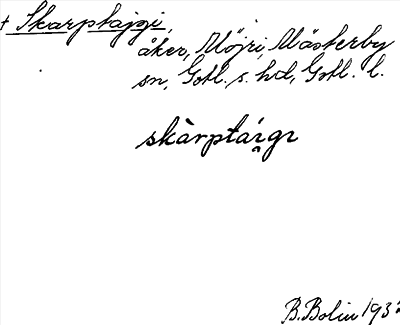 + Skarptajgi,
åker, Möjri, Mästerby
sn, Gotl. s. hd, Gotl. l.
skàrptái̯gı
B. Bolin 193